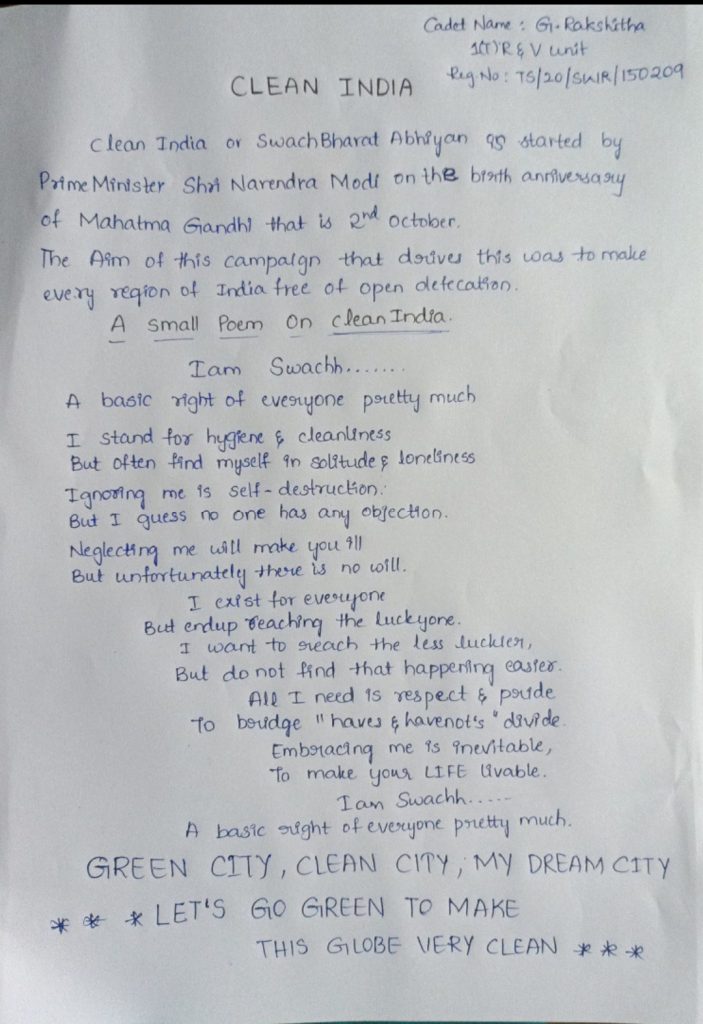 Cadet Name : G. Rakshitha
1(T) R & V unit
Reg No : TS/20/SWIR/150209
CLEAN INDIA
Clean India or Swach Bharat Abhiyan is started by
Prime Minister Shri Narendra Modi on the birth anniversary
of Mahatma Gandhi that is 2nd October.
The Aim of this campaign that drives this was to make
every region of India free of open defecation.
A Small Poem On clean India.
I am Swachh.......
A basic right of everyone pretty much
I stand for hygiene & cleanliness
But often find myself in solitude & loneliness
Ignoring me is self-destruction.
But I guess no one has any objection.
Neglecting me will make you ill
But unfortunately there is no will.
I exist for everyone
But endup reaching the luckyone.
I want to reach the less luckier,
But do not find that happening easier.
All I need is respect & pride
To bridge "haves & havenot's" divide.
Embracing me is inevitable,
To make your LIFE livable.
I am Swachh.....
A basic right of everyone pretty much.
GREEN CITY, CLEAN CITY, MY DREAM CITY
* * * LET'S GO GREEN TO MAKE
THIS GLOBE VERY CLEAN * * *